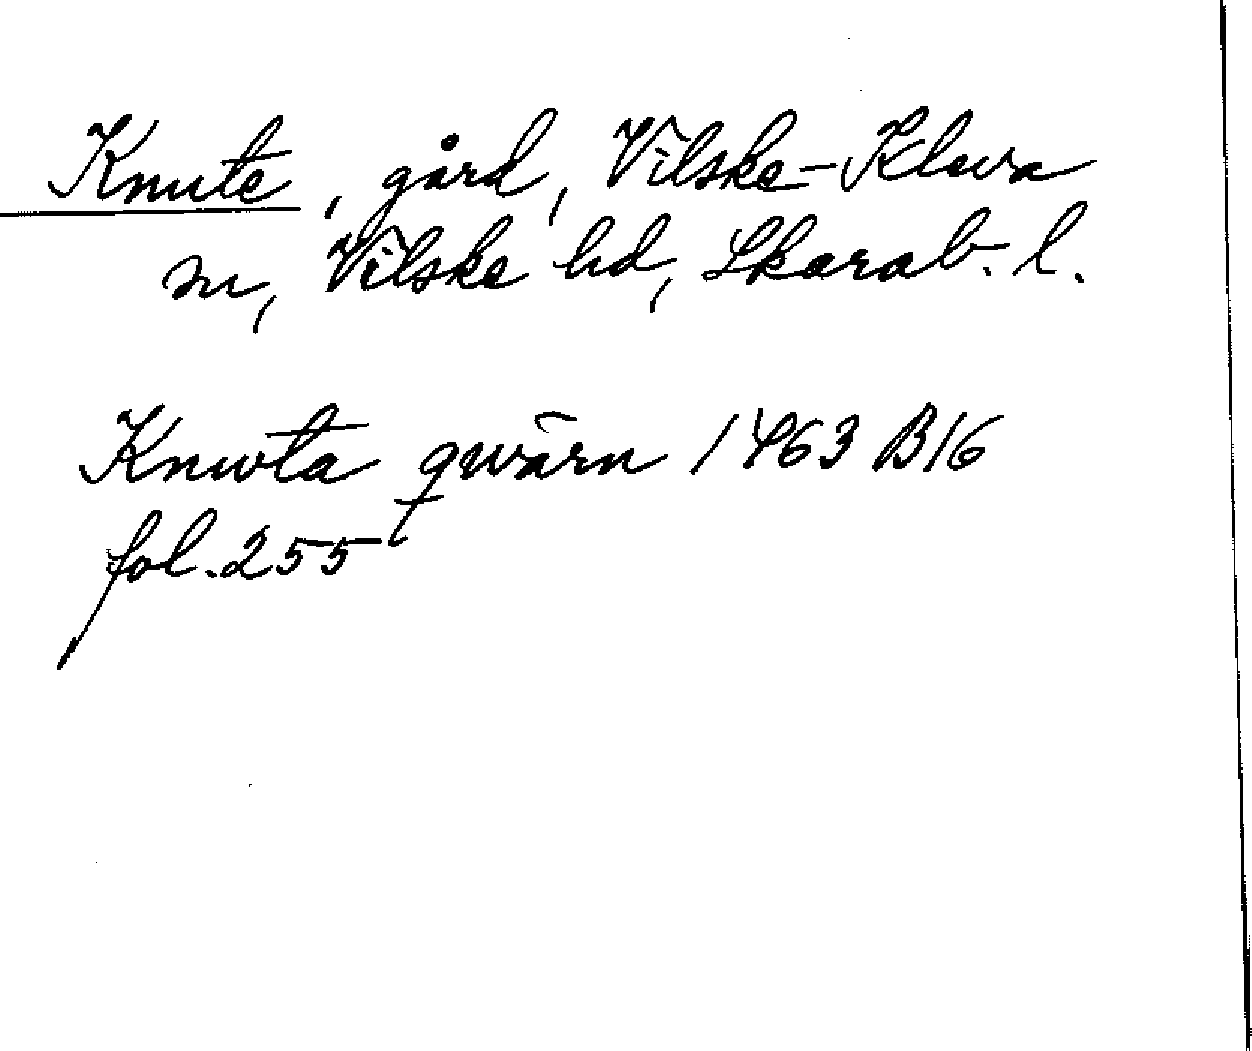 Knute, gård, Vilske-Kleva
sn, Vilske hd, Skarab. l.
Knwta qwärn 1463 B16
fol. 255